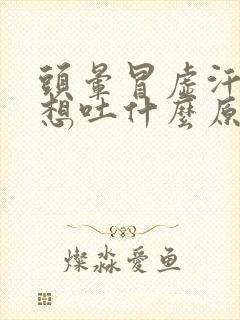 頭暈冒虛汗
想吐什麼原
燦淼愛魚